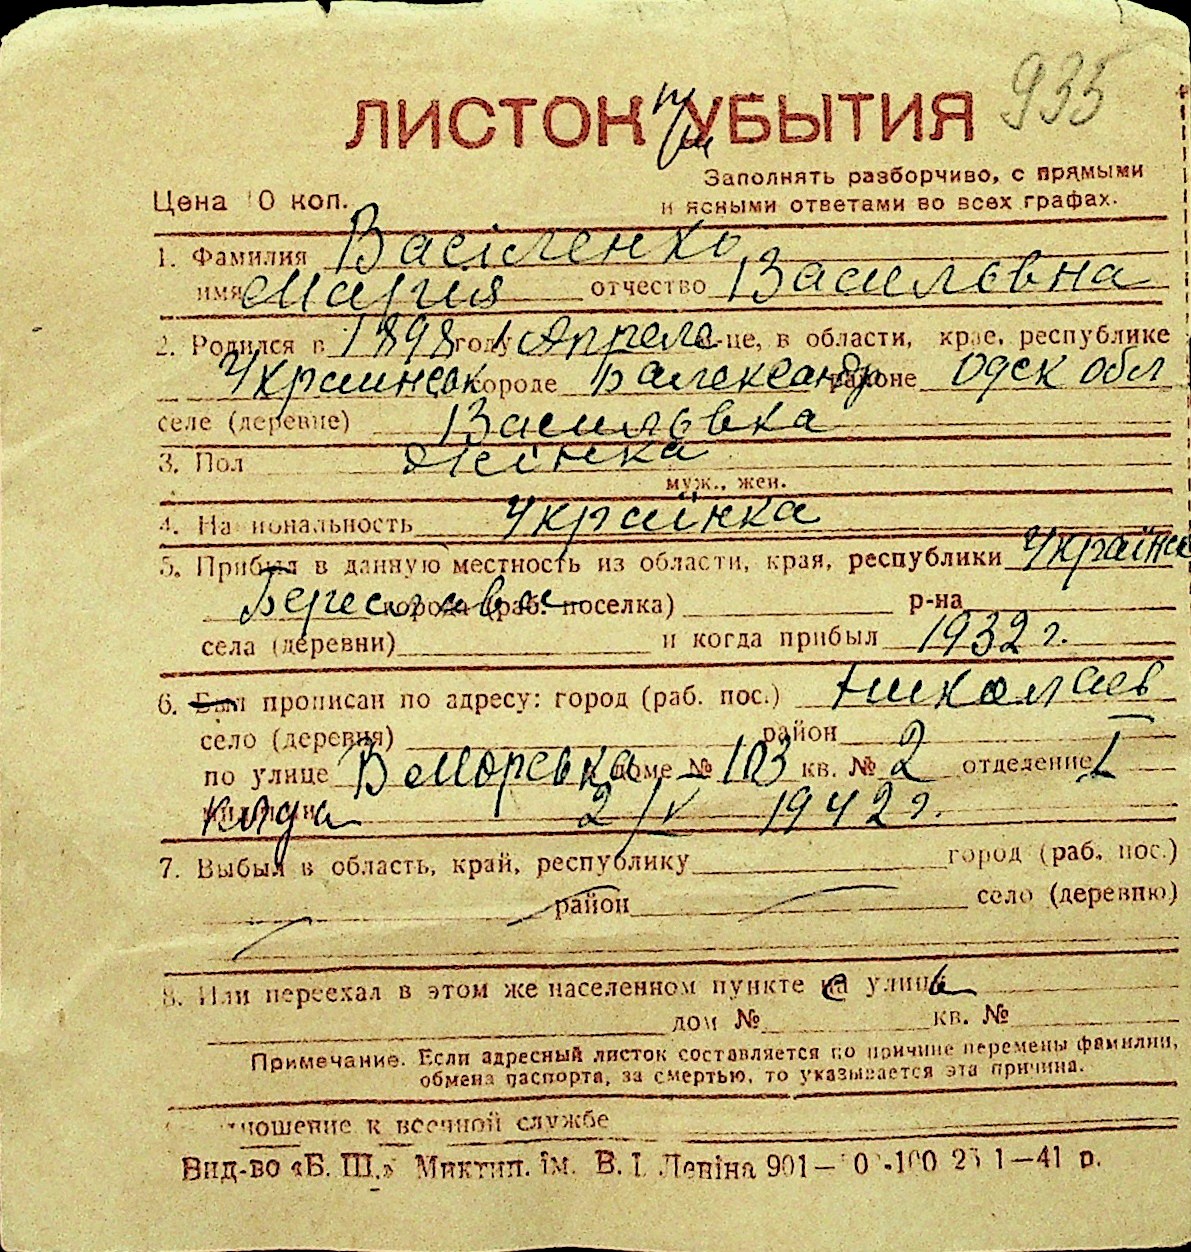 935
ЛИСТОК УБЫТИЯ
Заполнять разборчиво, с прямыми
Цена 0 коп.
и ясными ответами во всех графах.
1. Фамилия Васіленко
имя Мария отчество Васильевна
2. Родился в 1898 году 1 Апреля м-це, в области, крае, республике
Украинск городе Балександр районе Одеск обл
селе (деревне) Васильевка
3. Пол Жінка
муж., жен.
4. Национальность Українка
5. Прибыл в данную местность из области, края, республики Українск
города (раб. поселка) р-на
села (деревни) и когда прибыл 1932 г.
6. Был прописан по адресу: город (раб. пос.) Николаев
село (деревня) район
по улице В Морська доме № 103 кв. № 2 отделение I
милиции когда 2/V 1942 г.
7. Выбыл в область, край, республику город (раб. пос.)
район село (деревню)
8. Или переехал в этом же населенном пункте на улицу
дом № кв. №
Примечание. Если адресный листок составляется по причине перемены фамилии,
обмена паспорта, за смертью, то указывается эта причина.
ношение к военной службе
Вид-во «Б. Ш.» Миктип. ім. В. І. Леніна 901